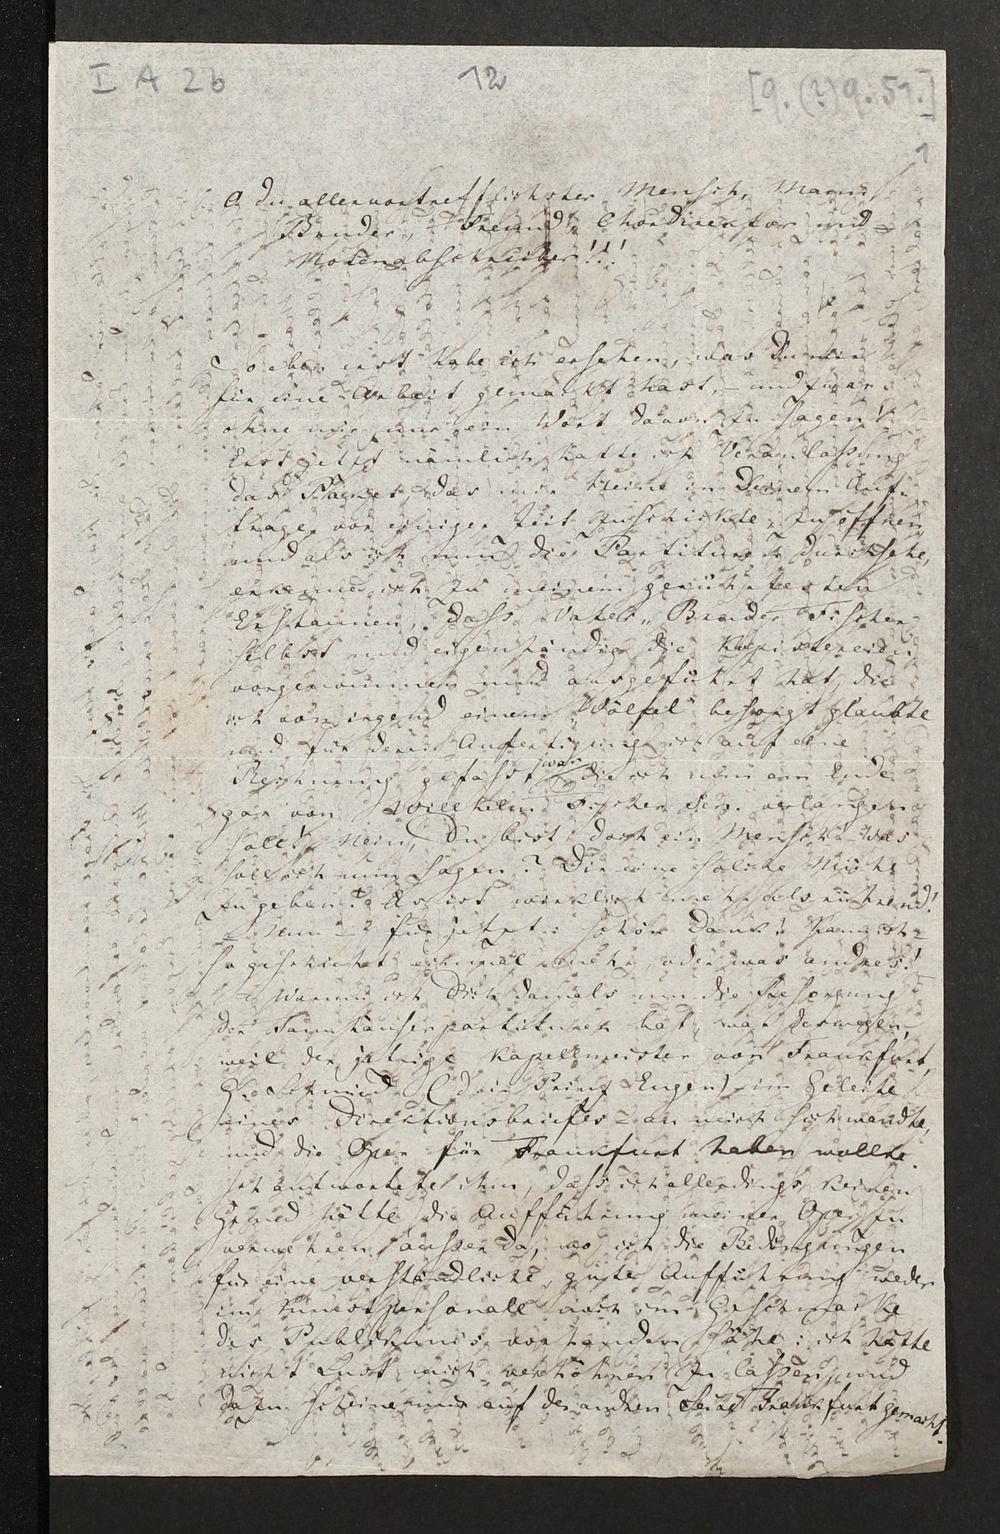 I A 2b
12
[9. (?) 9. 51.]
1
O Du allervortrefflichster Mensch, Mann,
Bruder, Freund, Chordirektor und
Notenabschreiber!!!
So eben erst habe ich ersehen, was Du mir
für eine Arbeit gemacht hast, – und zwar
ohne mir nur ein Wort davon zu sagen!
Erst jetzt nämlich hatte ich Veranlassung
das Packet, das mir Heine in Deinem Auf-
trage vor einiger Zeit zuschickte, zu öffnen,
und als ich nun die Partituren durchsehe,
erkenne ich zu meinem gerührtesten
Erstaunen, dass Vater u. Bruder Fischer
selbst und eigenhändig die Kopistereien
vorgenommen und ausgeführt hat, die
ich von irgend einem Wölfel besorgt glaubte
und für deren Anfertigung ich auf eine
Rechnung gefasst war, die ich nun am Ende
gar von Wilhelm Fischer sen. verlangen
soll! Nein, Du bist doch ein Mensch – was
soll ich nun sagen? Dir eine solche Mühe
zu geben! Es ist wirklich mehr als rührend!
– Nun – für jetzt: schön Dank! Kann ich –
so geschieht einmal mehr, oder was andres!
Warum ich Dich damals um die Besorgung
der Tannhäuserpartituren bat, war deswegen,
weil der jetzige Kapellmeister von Frankfurt,
G. Schmidt (Dein Prinz Eugen) im Geleite
eines Direktionsbriefes – an mich sich wandte,
und die Oper für Frankfurt haben wollte.
Ich antwortete ihm, dass ich allerdings keinen
Grund hätte die Aufführung meiner Oper zu
verwehren, ausser da, wo ich die Bedingungen
für eine verständliche, gute Aufführung weder
im Kunstpersonale noch im Geschmacke
des Publikums vorhanden sähe: ich hätte
nicht Lust mich verhöhnen zu lassen, und
dazu scheine mir auf der andren Seite Frankfurt gemacht.